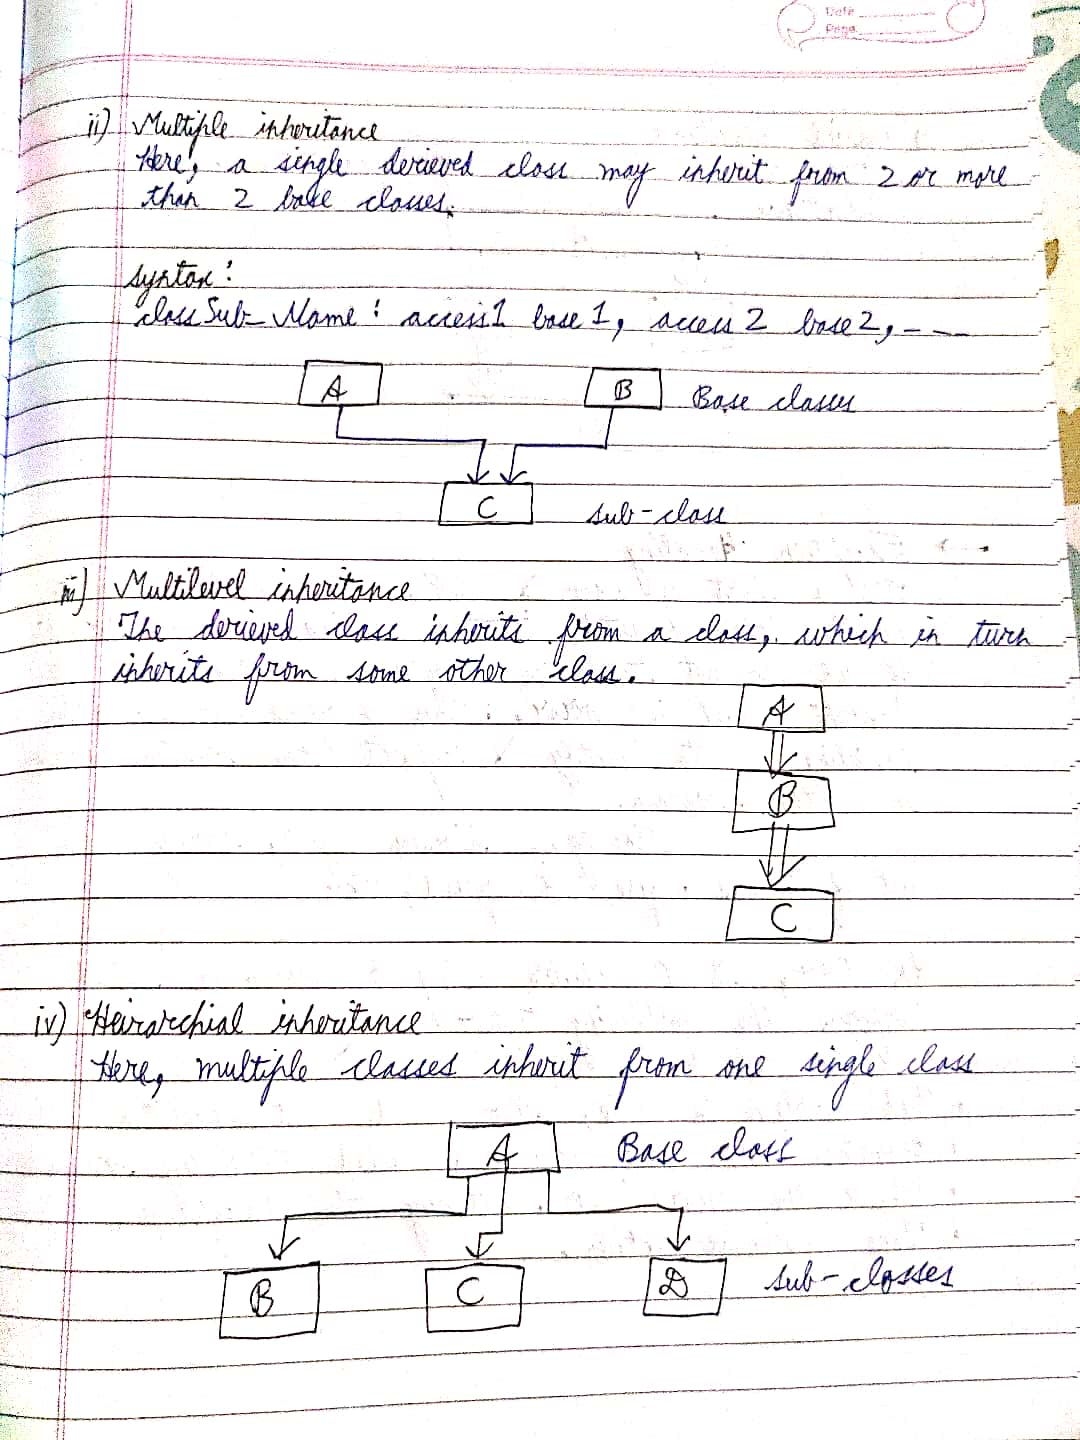 Date
Page
ii) Multiple inheritance
Here, a single derieved class may inherit from 2 or more
than 2 base classes.
syntax:
class Sub_Name : access1 base 1, access 2 base 2, - - -
A
B
Base classes
C
sub-class
iii) Multilevel inheritance
The derieved class inherits from a class, which in turn
inherits from some other class.
A
B
C
iv) Heirarchial inheritance
Here, multiple classes inherit from one single class
A
Base class
B
C
D
sub-classes